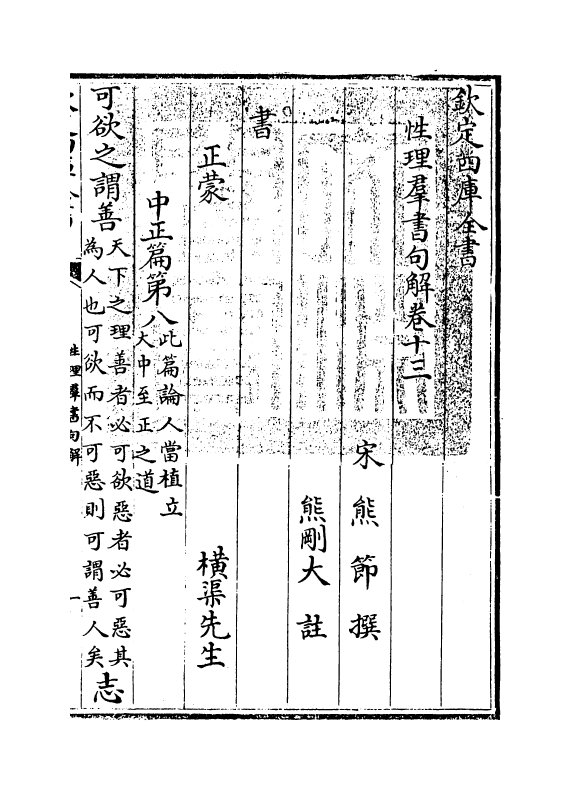 欽定四庫全書
性理羣書句解卷十三
宋熊節撰
熊剛大註
書
正蒙
橫渠先生
中正篇第八此篇論人當植立
大中至正之道
可欲之謂善天下之理善者必可欲惡者必可惡其
為人也可欲而不可惡則可謂善人矣志
性理羣書句解
一